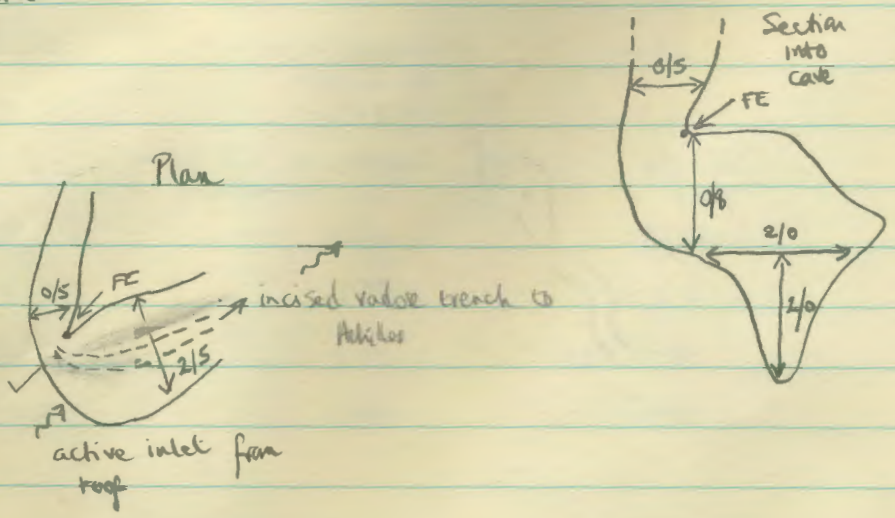 Section
into
cave
0/5
FE
Plan
0/8
2/0
FE
0/5
incised vadose trench to
Achilles
2/0
2/5
active inlet from
roof